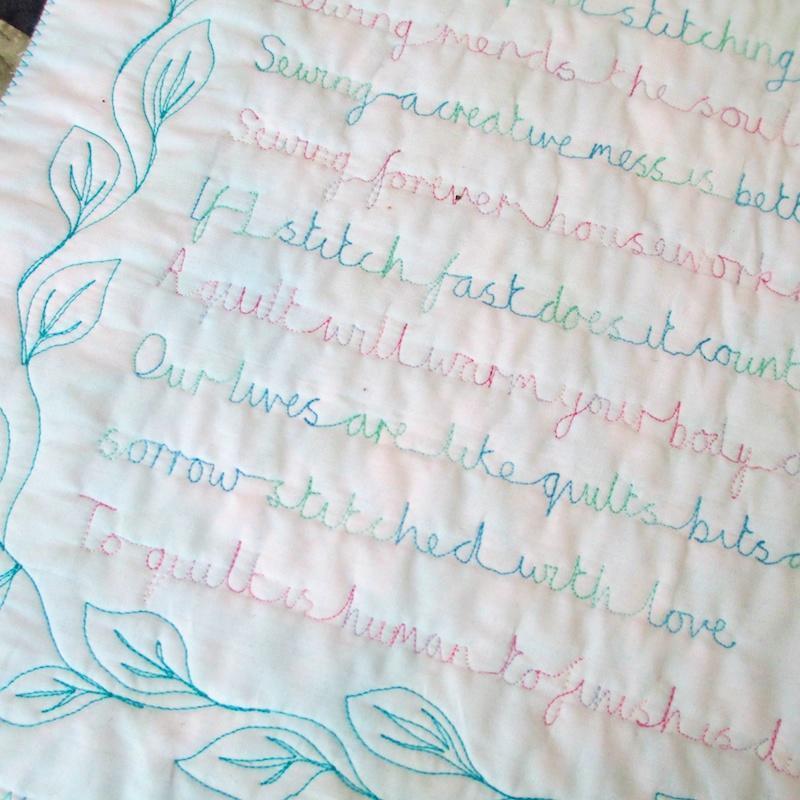 stitching
Sewing mends the soul
Sewing a creative mess is bett
Sewing forever housework
If I stitch fast does it count
A quilt will warm your body
Our lives are like quilts bits
sorrow stitched with love
To quilt is human to finish is di